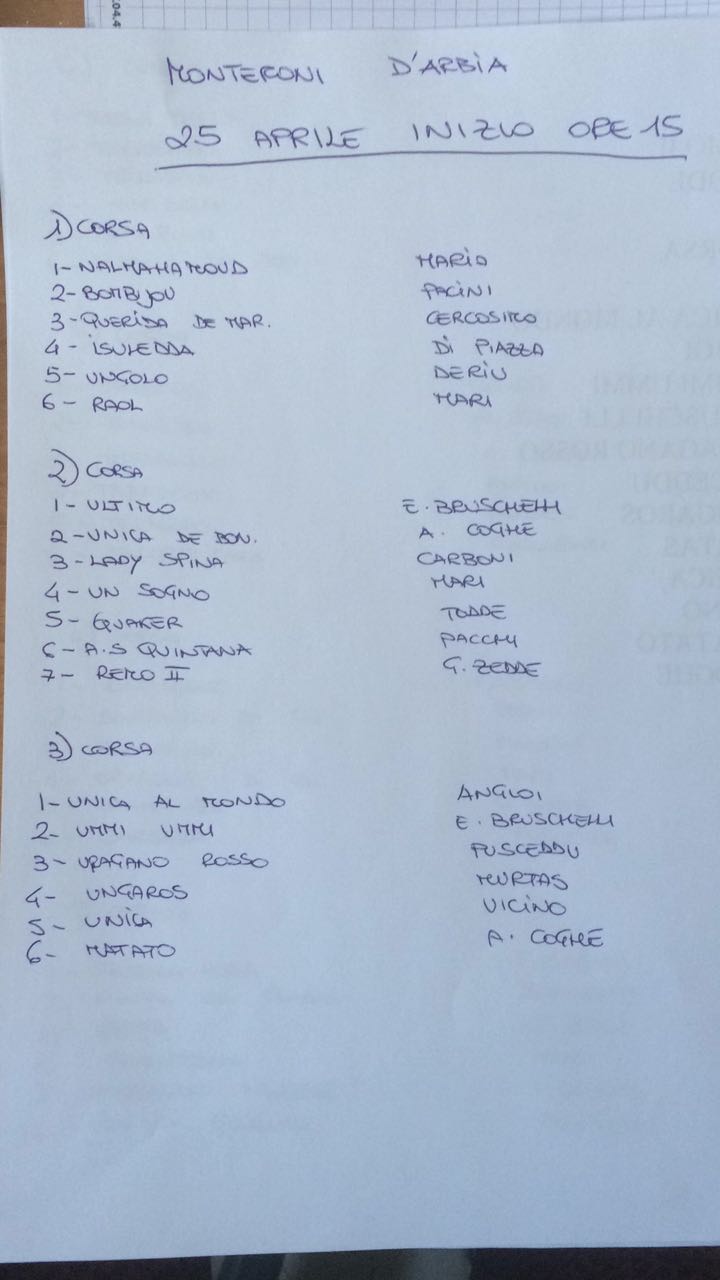 MONTERONI D'ARBIA
25 APRILE INIZIO ORE 15
1) CORSA
1- NALMAHAMOUD MARIO
2- BOMBIJOU PACINI
3- QUERIDA DE MAR. CERCOSIMO
4- ISULEDDA DI PIAZZA
5- UNGOLO DERIU
6- RAOL MARI
2) CORSA
1- ULTIMO E. BRUSCHELLI
2- UNICA DE BON. A. COGHE
3- LADY SPINA CARBONI
4- UN SOGNO MARI
5- QUAKER TODDE
6- A.S QUINTANA PACCHI
7- REMO II G. ZEDDE
3) CORSA
1- UNICA AL MONDO ANGIOI
2- UMMI UMMI E. BRUSCHELLI
3- URAGANO ROSSO PUSCEDDU
4- UNGAROS MURTAS
5- UNICA VICINO
6- MATATO A. COGHE